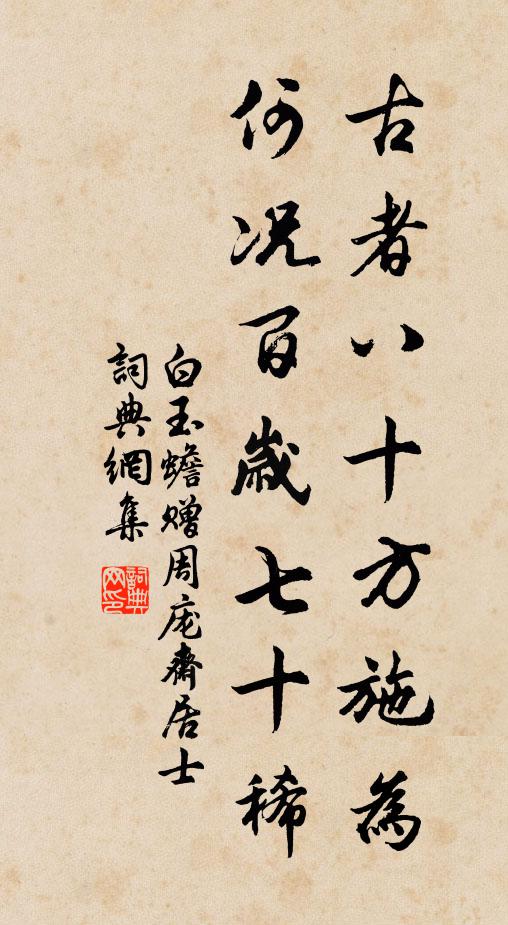 古者八十方施為
何况百歲七十稀
白玉蟾赠周庞齋居士
詞典網集
詞典网印